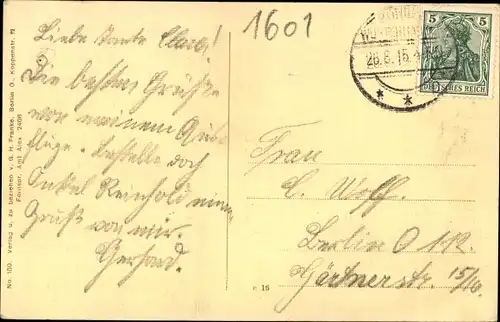 1601
Liebe Tante Clara!
Die besten Grüße
von meinem Aus-
fluge. Bestelle doch
Onkel Reinhold einen
Gruß von mir
Gerhard.
5 5
DEUTSCHES REICH
26.8.15.
* *
Frau
C. Wolff.
Berlin O 112.
Gärtnerstr. 15/16.
No. 100. Verlag u. zu beziehen v. G. H. Franke, Berlin O., Koppenstr. 72
Fernspr. Amt Alex 2406
c 16